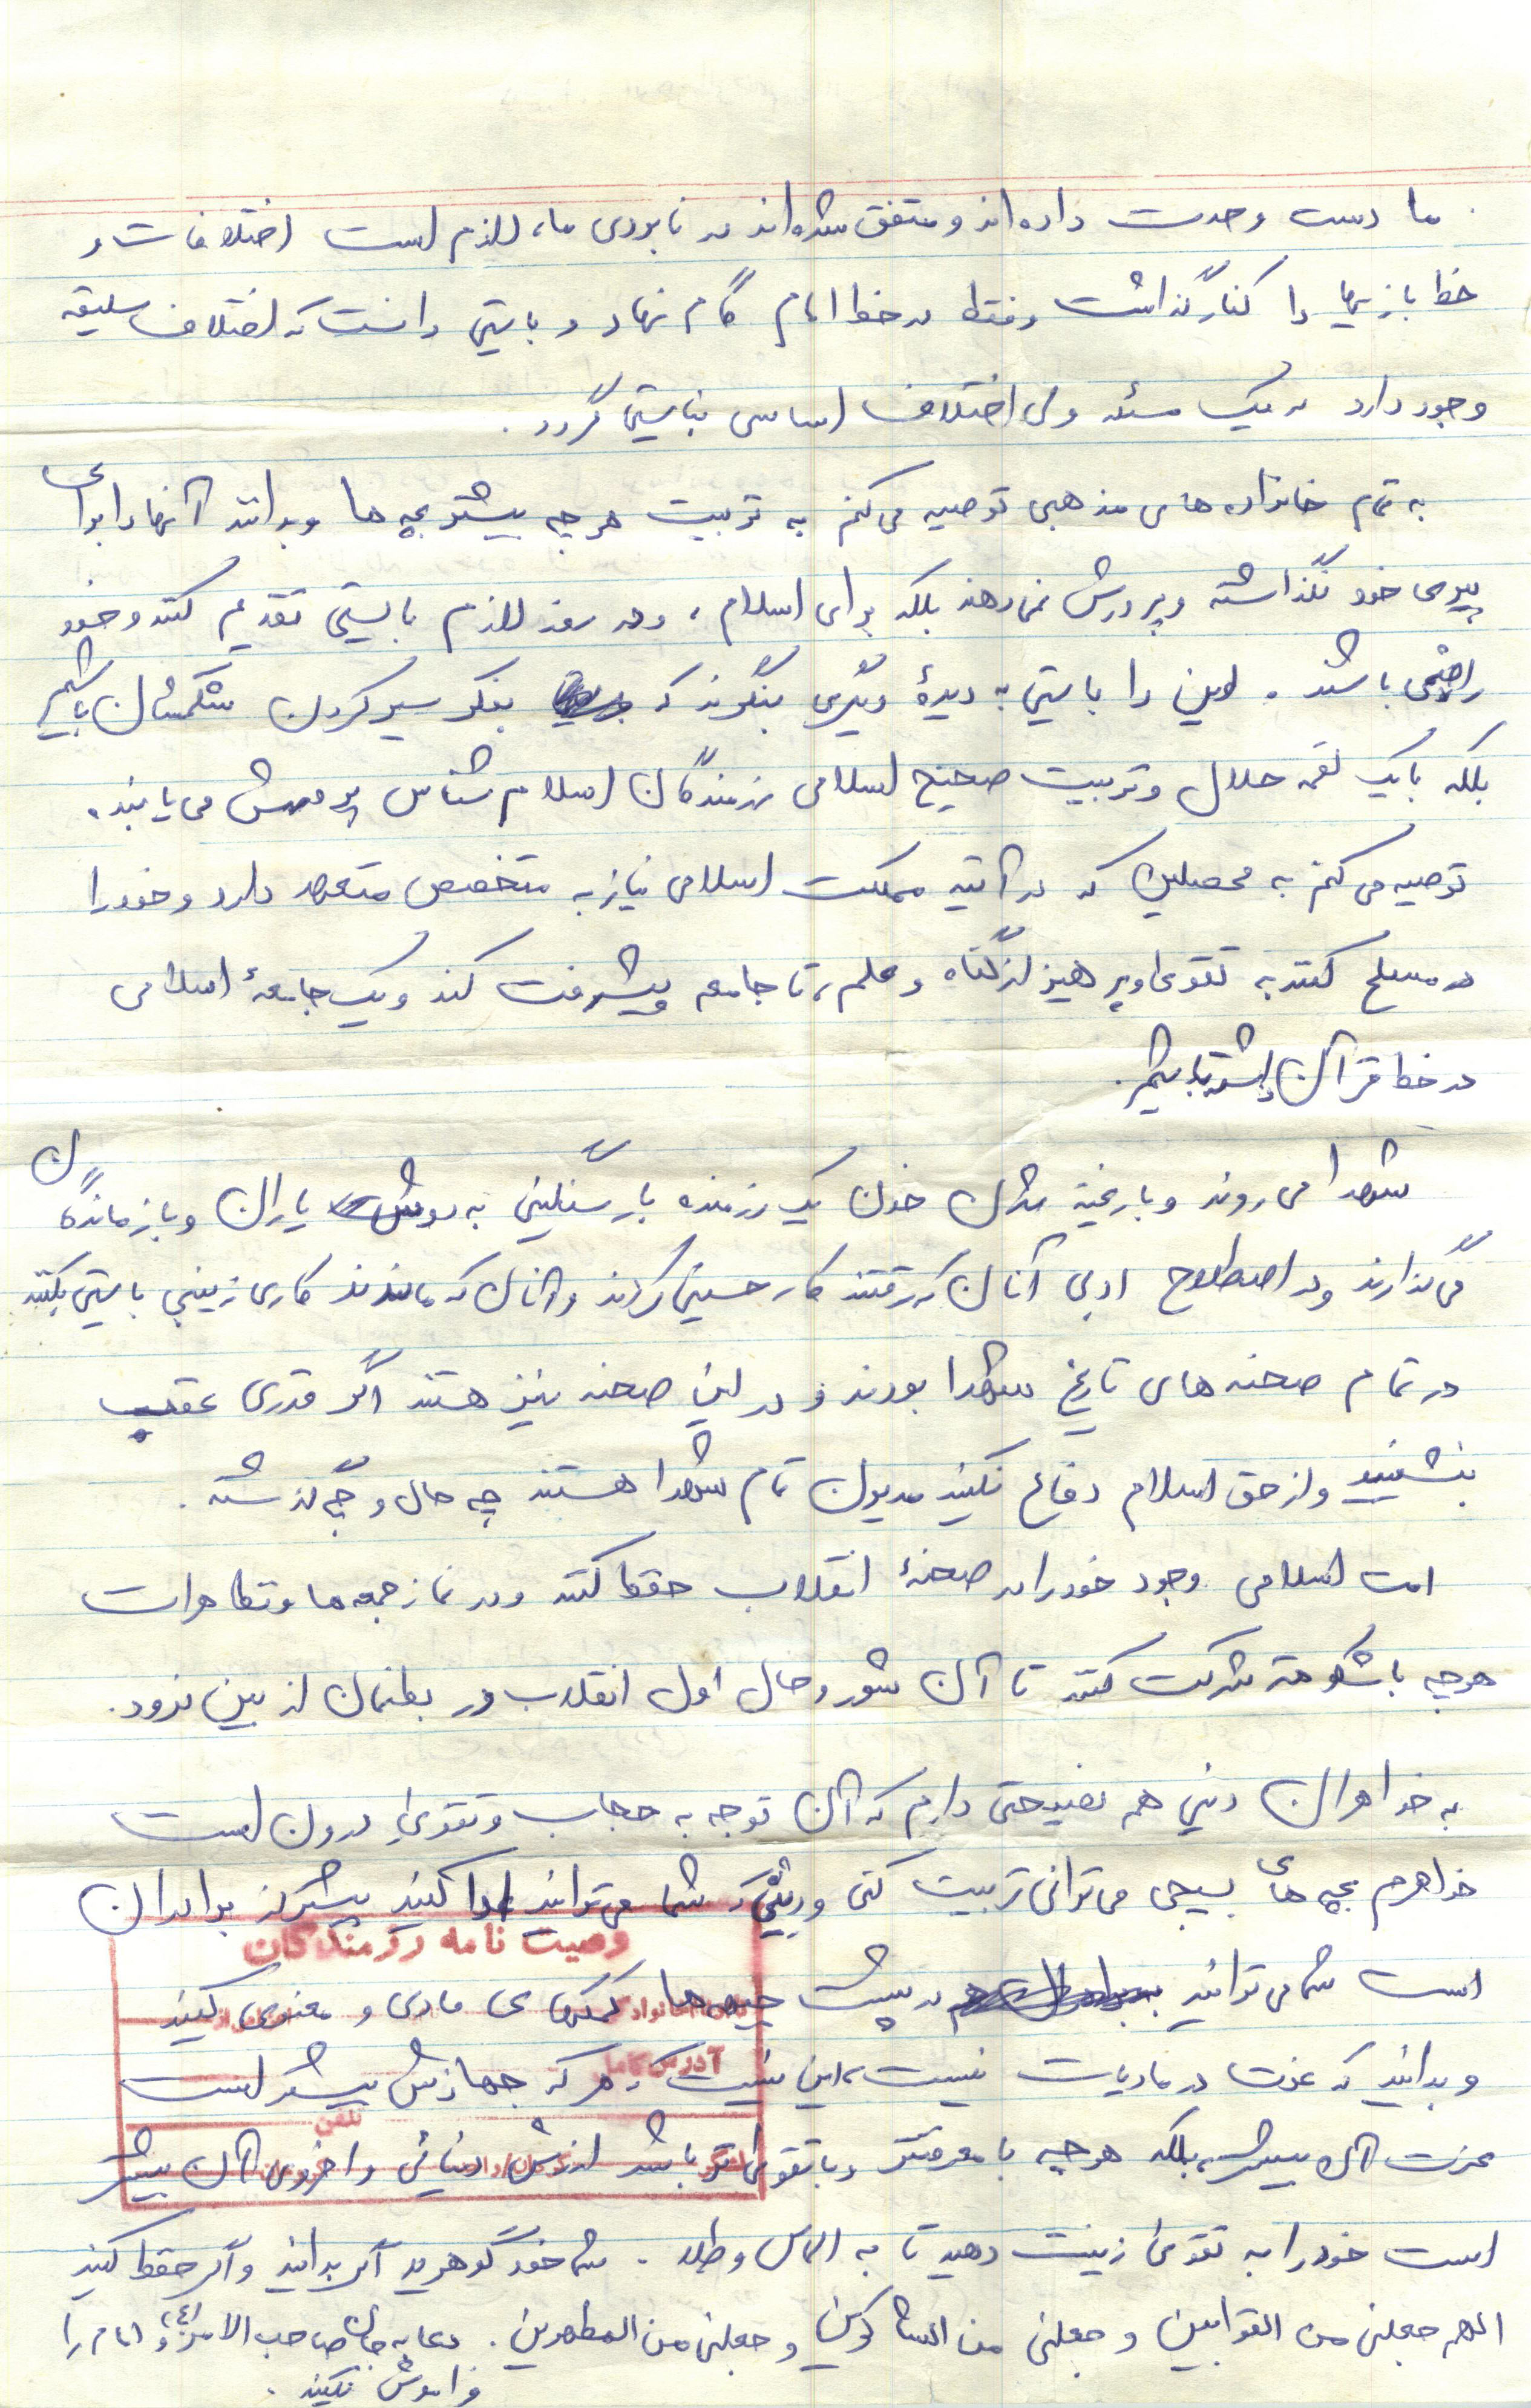 ما دست وحدت داده‌اند و متفق شده‌اند در نابودی ما، لازم است اختلافات و
خط بازیها را کنار گذاشت و فقط در خط امام گام نهاد و بایستی دانست که اختلاف سلیقه
وجود دارد در یک مسئله ولی اختلاف اساسی نبایستی گردد.
به تمام خانواده‌های مذهبی توصیه می‌کنم به تربیت هرچه بیشتر بچه‌ها و بدانند آنها را برای
پیری خود نگذاشته و پرورش نمی‌دهند بلکه برای اسلام، و در روز لازم بایستی تقدیم کنند و خود
راضی باشند. این را بایستی به دیدۀ دیگری بنگرند که بفکر سیر کردن شکمشان باشیم
بلکه با یک لقمه حلال و تربیت صحیح اسلامی رزمندگان اسلام شناس پرورش می‌یابند.
توصیه می‌کنم به محصلین که در آتیه مملکت اسلامی نیاز به متخصص متعهد دارد و خود را
در مسلح کنند به تقوی و پرهیز از گناه و علم، تا جامعه پیشرفت کند و یک جامعۀ اسلامی
در خط قرآن داشته باشیم.
شهدا می‌روند و با ریخته شدن خون یک رزمنده بار سنگینی به دوش یاران و بازماندگان
می‌گذارند و در اصطلاح ادبی آنان که رفتند کار حسینی کردند و آنان که ماندند کاری زینبی بایستی بکنند
در تمام صحنه‌های تاریخ شهدا بودند و در این صحنه نیز هستند اگر قدری عقب
بنشینید و از حق اسلام دفاع نکنید مدیون تمام شهدا هستند چه حال و چه گذشته.
امت اسلامی وجود خود را در صحنۀ انقلاب حفظ کنند و در نماز جمعه‌ها و تظاهرات
هرچه باشکوهتر شرکت کنند تا آن شور و حال اول انقلاب در بطنمان از بین نرود.
به خواهران دینی هم نصیحتی دارم که آن توجه به حجاب و تقوای درون است
خواهرم بچه‌های بسیجی می‌توانی تربیت کنی و نقشی که شما می‌توانید ادا کنید بیشتر از برادران
وصیت نامه رزمندگان
است شما می‌توانید در پشت جبهه‌ها کمکهای مادی و معنوی کنید
آدرس کامل
و بدانید که عزت در مادیات نیست، این نیست که هر که جهازش بیشتر است
تلفن
عزت آن بیشتر، بلکه هرچه با معرفتتر و با تقوی‌تر باشد ارزش دنیائی و اخروی آن بیشتر
است خود را به تقوی زینت دهید تا به الماس و طلا. شما خود گوهرید آنرا بدانید و آنرا حفظ کنید
اللهم جعلنی من التوابین و جعلنی من الشاکرین و جعلنی من المطهرین. دعا به جان صاحب الامر (ع) و امام را
فراموش نکنید.